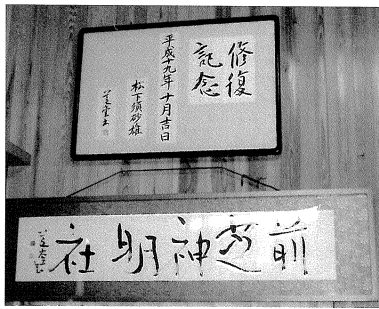 修復
記念
平成十九年十月吉日
松下須砂雄
前芝神明社